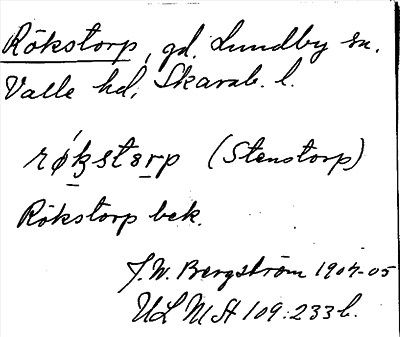 Rökstorp, gd, Lundby sn.
Valle hd, Skarab. l.
(Stenstorp)
Rökstorp bek.
J. W. Bergström 1904-05
ULMA 109:233 b.